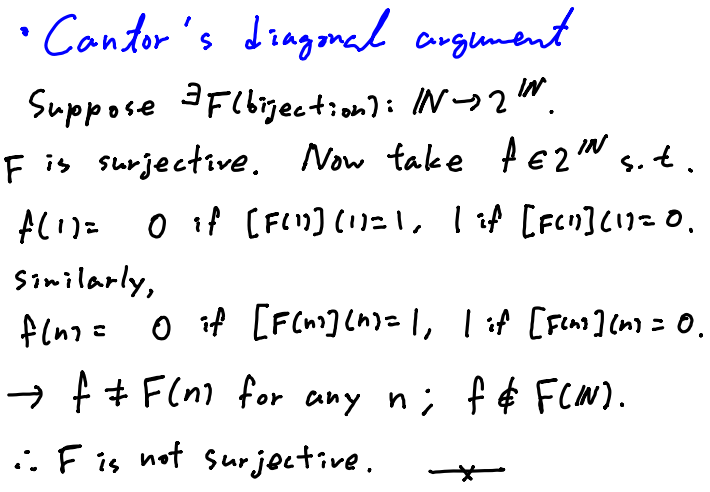 • Cantor's diagonal argument
Suppose ∃F(bijection): ℕ→2^ℕ.
F is surjective. Now take f∈2^ℕ s.t.
f(1)= 0 if [F(1)](1)=1, 1 if [F(1)](1)=0.
Similarly,
f(n)= 0 if [F(n)](n)=1, 1 if [F(n)](n)=0.
→ f≠F(n) for any n; f∉F(ℕ).
∴ F is not surjective.